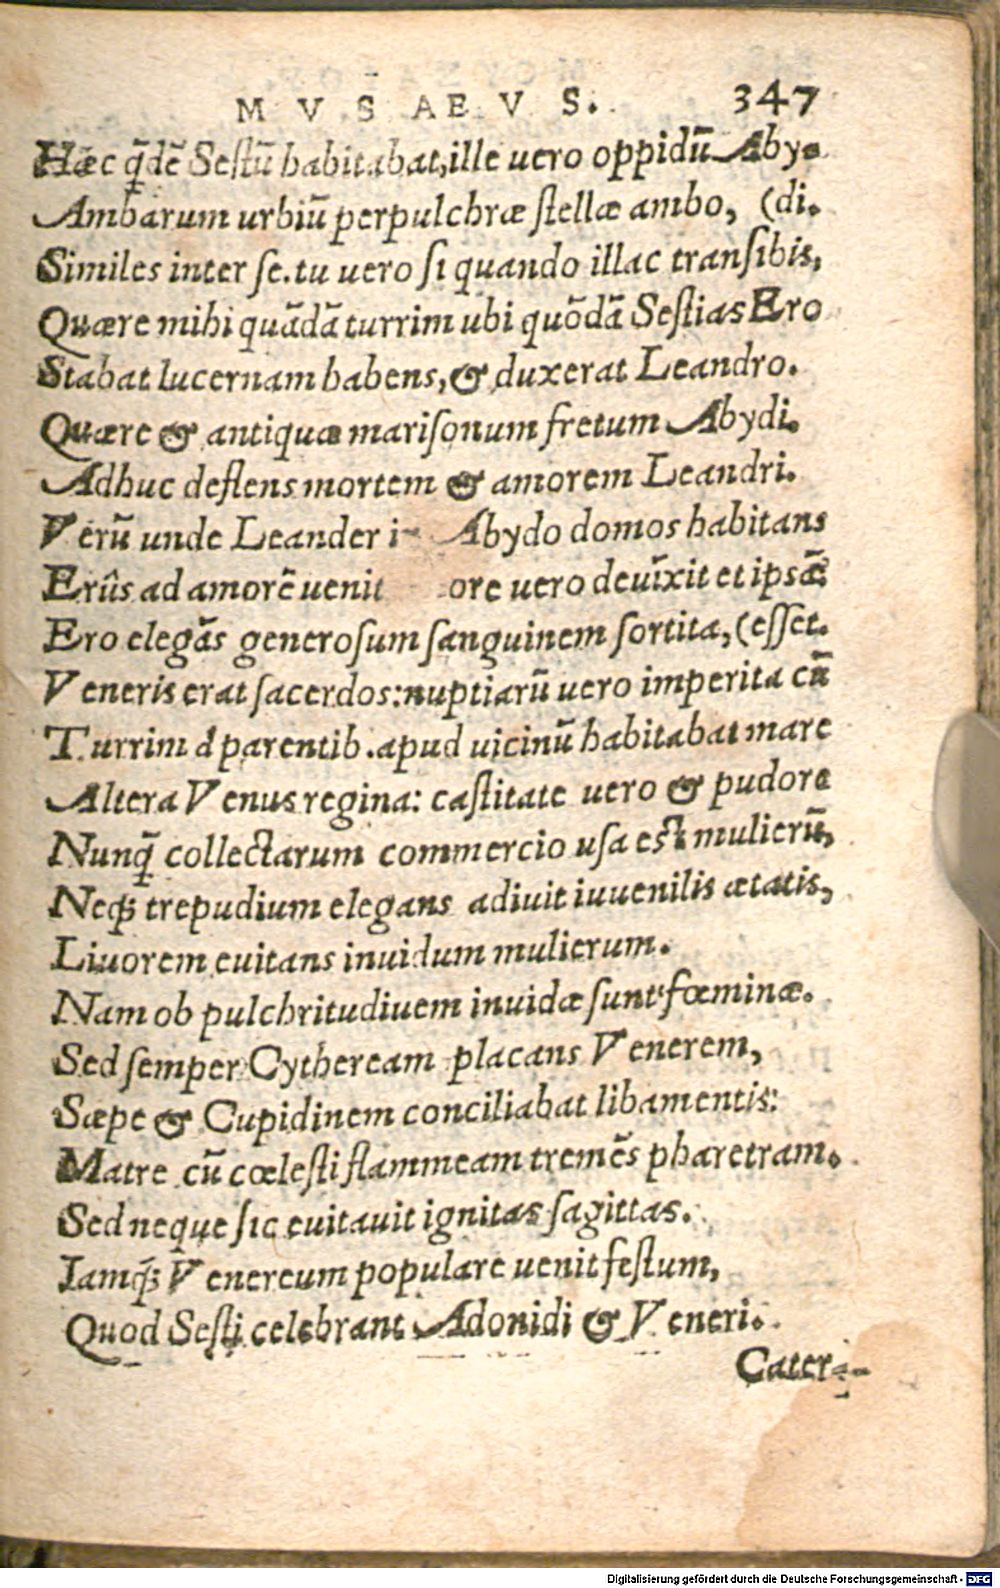 MVSAEVS. 347
Hæc q̃dē Sestū habitabat, ille uero oppidū Aby-
Ambarum urbiū perpulchræ stellæ ambo, (di.
Similes inter se. tu uero si quando illac transibis,
Quære mihi quādā turrim ubi quōdā Sestias Ero
Stabat lucernam habens, & duxerat Leandro.
Quære & antiquæ marisonum fretum Abydi.
Adhuc deflens mortem & amorem Leandri.
Verū unde Leander Abydo domos habitans
Erûs ad amorē uenit ore uero deuīxit et ipsā:
Ero elegās generosum sanguinem sortita, (esset.
Veneris erat sacerdos: nuptiarū uero imperita cū
Turrim à parentib. apud uicinū habitabat mare
Altera Venus regina: castitate uero & pudore
Nunq̃ collectarum commercio usa est mulierū,
Neq; trepudium elegans adiuit iuuenilis ætatis,
Liuorem euitans inuidum mulierum.
Nam ob pulchritudiuem inuidæ sunt fœminæ.
Sed semper Cytheream placans Venerem,
Sæpe & Cupidinem conciliabat libamentis:
Matre cū cœlesti flammeam tremēs pharetram.
Sed neque sic euitauit ignitas sagittas.
Iamq; Venereum populare uenit festum,
Quod Sesti celebrant Adonidi & Veneri.
Cater-
Digitalisierung gefördert durch die Deutsche Forschungsgemeinschaft - DFG